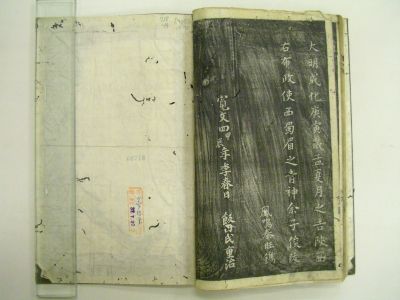 大明成化庚寅歳孟夏月之吉陝西
右布政使西蜀眉之青神余子俊跋
鳳鳴
寛文四甲辰年季春日
氏重治